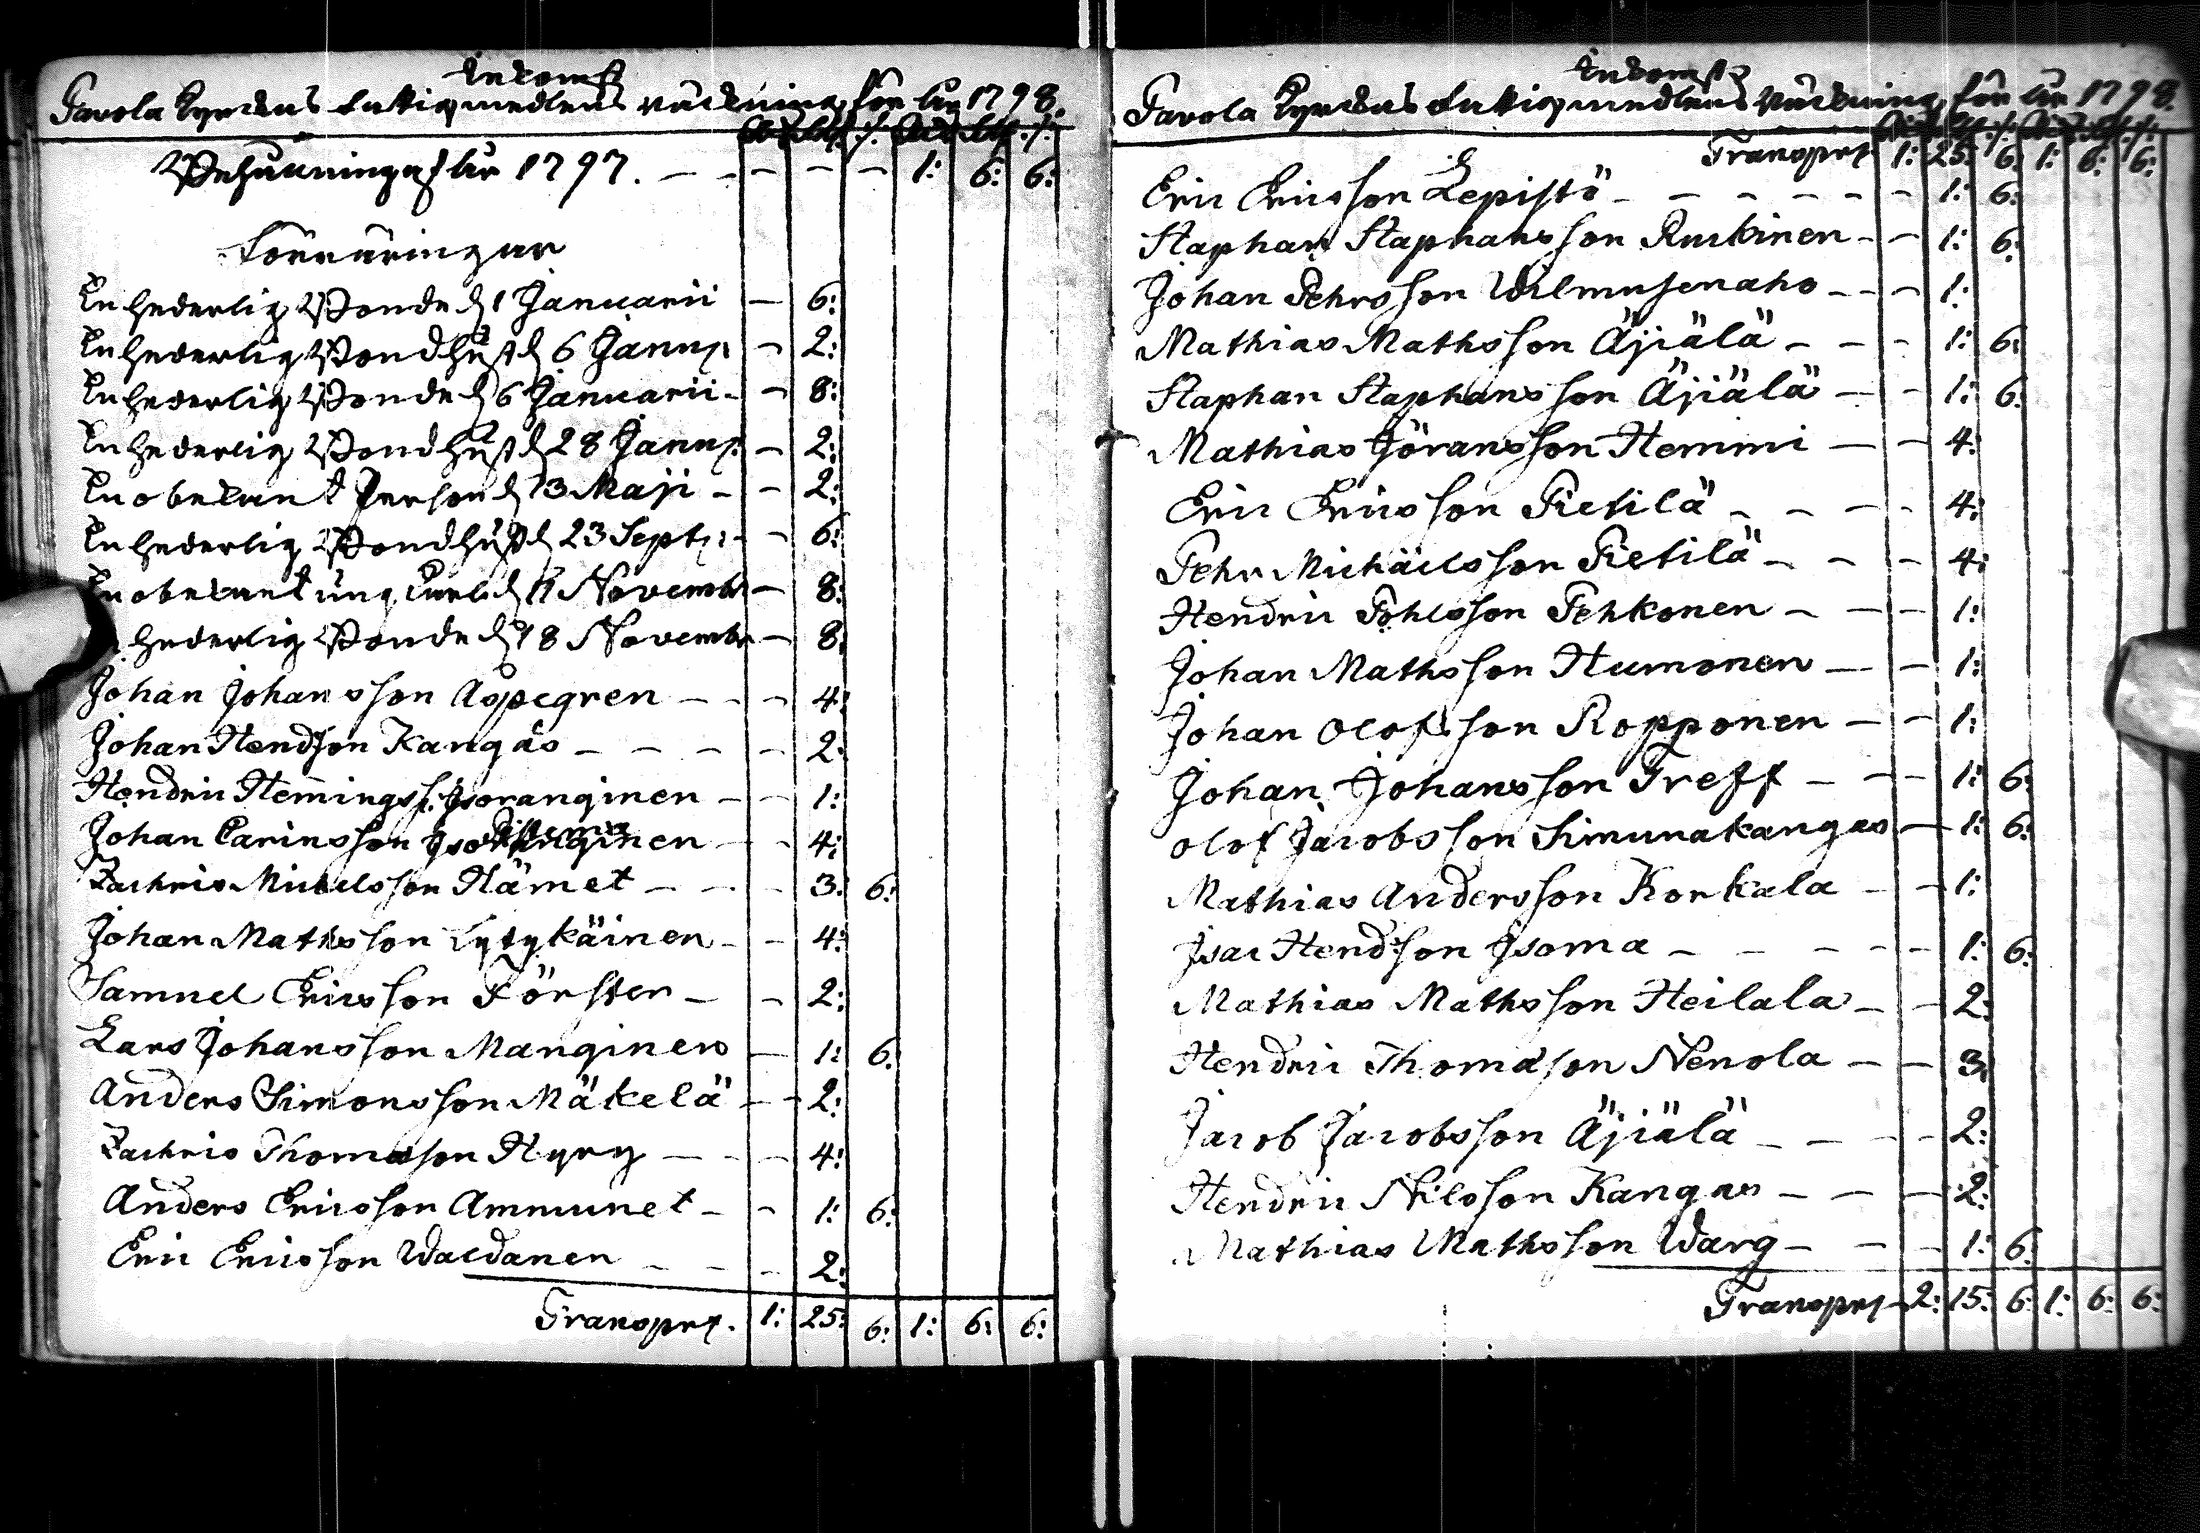 Inkomst
Pavola Kyrckas fattigmedlens räckning för år 1798.
Behållning af år 1797. - - - - - 1: 6: 6:
Förräringar
En hederlig Bonde d 1 Januarii - 6:
En hederlig Bondhust d 6 Janua - 2:
En hederlig Bonde d 6 Januarii - - 8:
En hederlig Bondhust d 28 Janua - 2:
En obekant Person d 13 Maji - - 2:
En hederlig Bondhust d 23 Sept - - 6:
En obekant ung Karl d 11 Novembr - 8:
hederlig Bonde d 18 Novembr - 8:
Johan Johansson Aspegren - - - 4:
Johan Hendsson Kangas - - - - 2:
Hendric Hemmingss. Isoranginen - - 1:
Johan Carinsson - - 4:
Zachris Mickelsson Hämet - - - 3: 6:
Johan Mathsson Lytykäinen - - 4:
Samuel Ericsson Förster - - 2:
Lars Johansson Manginen - 1: 6:
Anders Simonsson Mäkelä - - 2:
Zachris Thomasson Hyry - - - 4:
Anders Ericsson Ammunet - - 1: 6:
Eric Ericsson Waldanen - - - 2:
Transprt. 1: 25: 6: 1: 6: 6:
Inkomst
Pavola Kyrckas fattigmedlens räckning för år 1798.
Transprt 1: 25: 6: 1: 6: 6:
Eric Ericsson Lepistö - - - - - - 1: 6:
Staphan Staphansson Ruskinen - - 1: 6:
Johan Pehrsson Wilmusenaho - - - 1:
Mathias Mathsson Äjiälä - - - 1: 6:
Staphan Staphansson Äjiälä - - 1: 6:
Mathias Jöransson Hemmi - - 4:
Eric Ericsson Pietilä - - - - 4:
Pehr Michäelsson Pietilä - - - 4:
Hendric Pohlsson Pehkonen - - - 1:
Johan Mathsson Humonen - - 1:
Johan Olofsson Ropponen - - 1:
Johan Johansson Treff - - - 1: 6:
Olof Jacobsson Simunakangas - 1: 6:
Mathias Andersson Korkala - - 1:
Isac Hendsson Isoma - - - - - 1: 6:
Mathias Mathsson Heilala - - 2:
Hendric Thomasson Nenola - - 3:
Jacob Jacobsson Äjiälä - - - - 2:
Hendric Nilsson Kangas - - - 2:
Mathias Mathsson Warg - - - 1: 6:
Transprt - 2: 15: 6: 1: 6: 6: